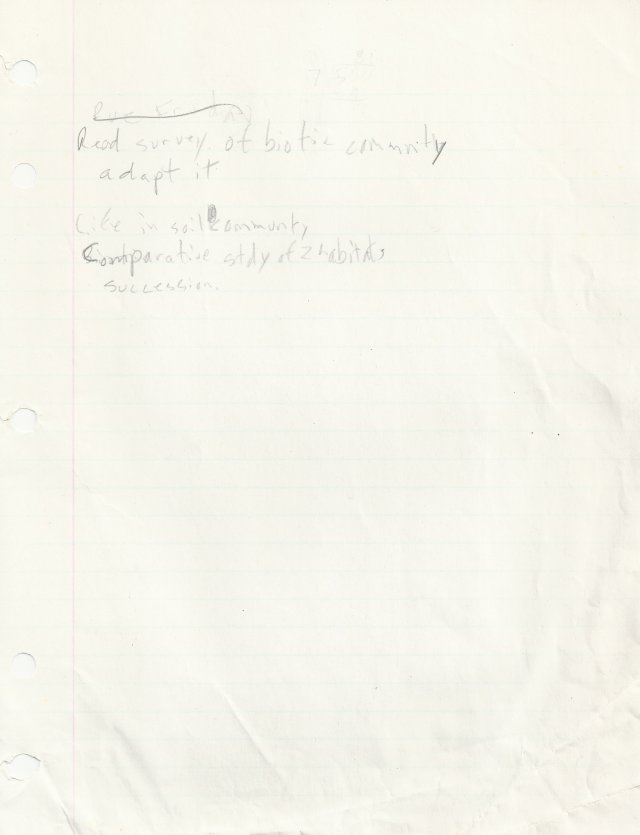 Read survey of biotic community
adapt it
Life in soil community
Comparative stdy of 2 habitats
succession.